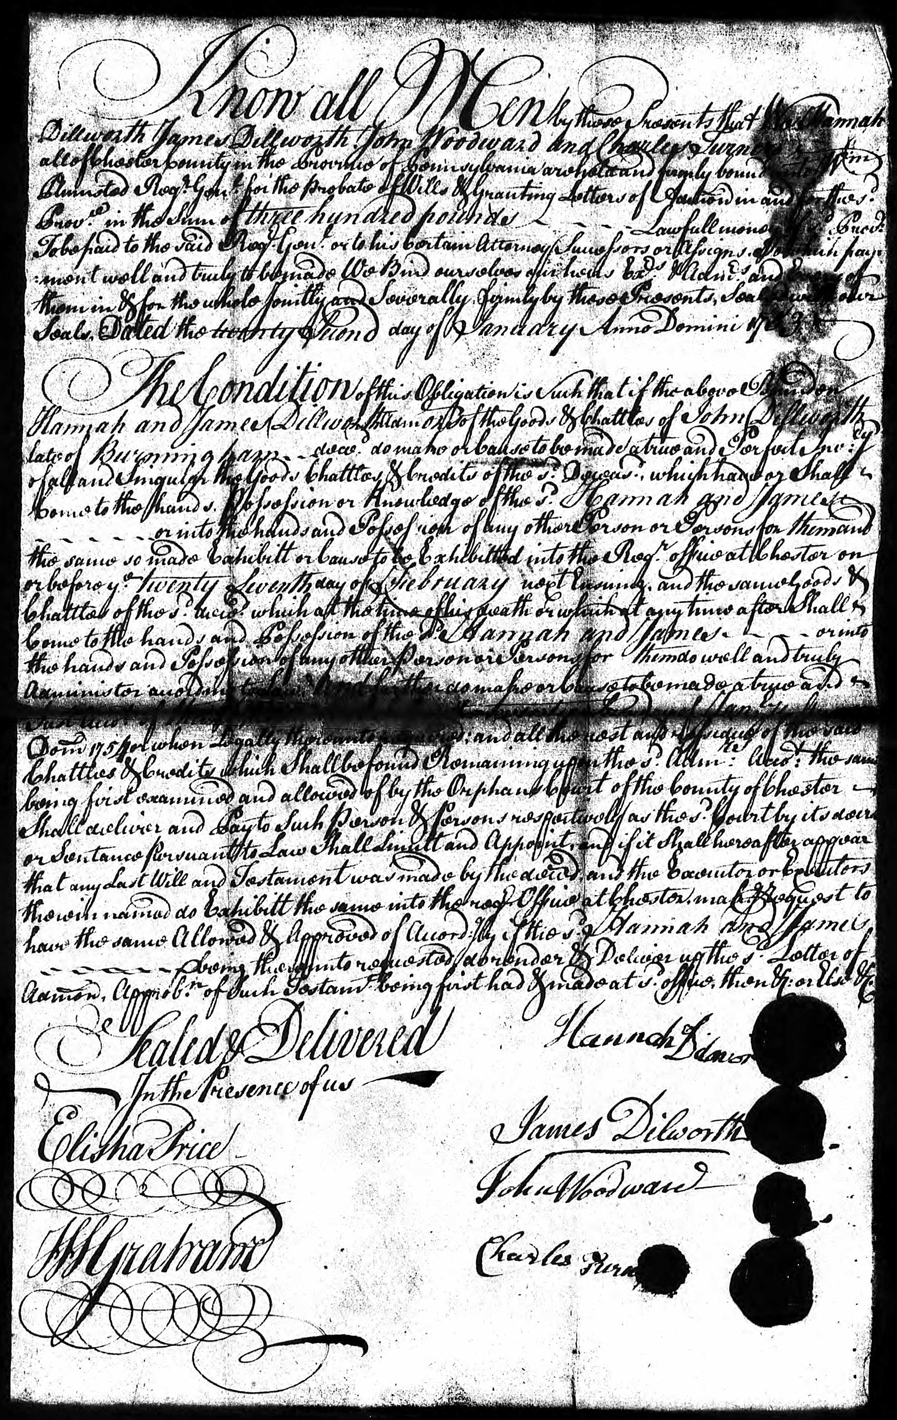 Know all Men by these Presents that We Hannah
Dillworth James Dillworth John Woodward and Charles Turner
all of Chester County in the Province of Pennsylvania are held and firmly bound unto Wm
Plumsted Regr. Genl. for the Probate of Wills & Granting Letters of Admon in and for the sd.
Provce in the Sum of three hundred pounds Lawfull money
To be paid to the said Regr. Genl. or to his Certain Attorney Successors or Assigns, to which pay
:ment well and truly to be made We Bind ourselves our heirs Exrs & Admrs and
them in & for the whole Jointly and Severally, firmly by these Presents, Sealed with our
Seals, Dated the twenty Second day of January Anno Domini
The Condition of this Obligation is Such that if the above Bounden
Hannah and James Dillworth Admors of the Goods & Chattles of John Dillworth
late of Burmingham decd. do make or Cause to be made a true and Perfect Inv:ry
of all and Singular the Goods Chattles & Credits of the sd. Deceasd., which have or Shall
Come to the hands, Possession or Knowledge of the sd. Hannah and James
or into the hands and Possession of any other Person or Persons for them and
the same so made Exhibitt or Cause to be Exhibitted into the Regrs. office at Chester on
or before ye. Twenty Seventh day of February next Ensuing, and the same Goods &
Chattles of the sd. decd. which at the time of his death or which at any time after Shall
Come to the hands and Possession of the sd. Hannah and James or into
the hands and Possession of any other Person or Persons for them do well and truly
Administer according to Law And further do make or Cause to be made a true and
Just
Dom 1754 or when Legally thereunto required: and all the rest and Residue of the said
Chattles & Credits which Shall be found Remaining upon the sd. Admrs. Acct. the same
being first examined and allowed of by the Orphans Court of the County of Chester
Shall deliver and Pay to Such Person & Persons respectively as the sd. Court by its decree
or Sentance Pursuant to Law Shall Limitt and Appoint, and if it Shall hereafter appear
that any Last Will and Testament was made by the decd. and the Executor or Executors
therein named do Exhibitt the same into the regrs. Office at Chester, making request to
have the same Allowed & Approved of Accord:ly if the sd. Hannah and James
being thereunto requested do render & Deliver up the sd. Letter of
Admon, Approbn. of Such Testamt. being first had & made at sd. office, then &c. or Else &c.
Sealed & Delivered
In the Presence of us
Hannah
James Dilworth
Elisha Price
John Woodward
Charles